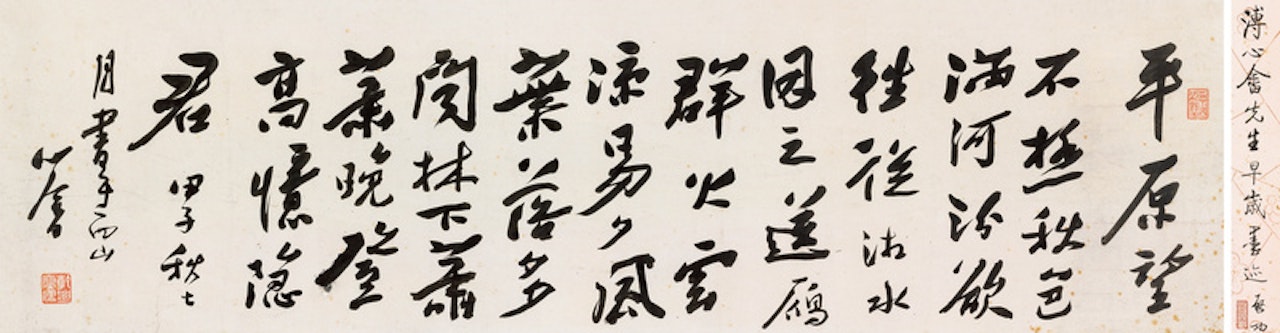 溥心畬先生早歲墨迹 启功
平原望
不極秋色
滿河汾欲
往從湘水
因之送雁
群火雲
涼易夕風
葉落多
聞林下蕭
蕭晚登
高憶隱
君 甲子秋七
月書于西山
心畬